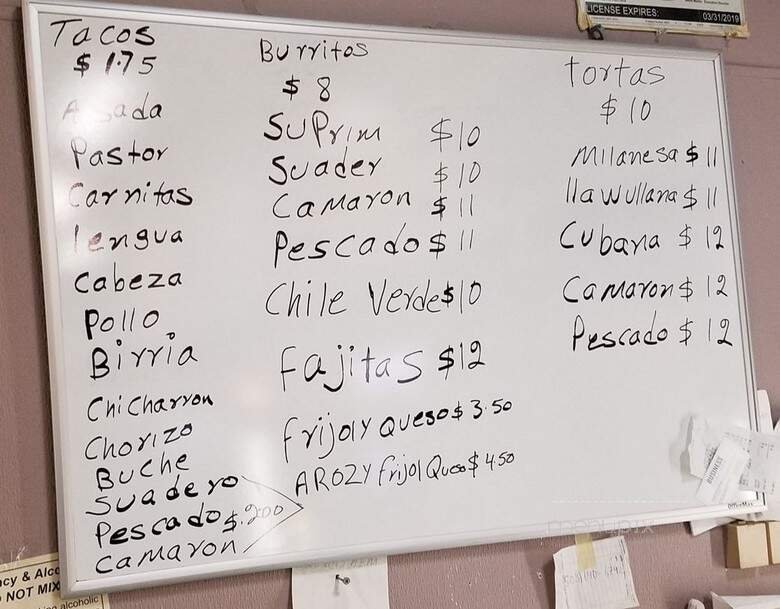 Tacos
$ 1.75
Asada
Pastor
Carnitas
lengua
Cabeza
Pollo
Birria
Chicharron
Chorizo
Buche
Suadero
Pescado $.200
Camaron
Burritos
$ 8
SuPrim $10
Suader $10
Camaron $ 11
Pescado $ 11
Chile Verde $10
Fajitas $12
Frijol y Queso $ 3.50
AROZ Y Frijol Queso $ 4.50
tortas
$ 10
Milanesa $ 11
llawullana $ 11
Cubana $ 12
Camaron $ 12
Pescado $ 12
LICENSE EXPIRES: 03/31/2019
OfficeMax
menupix
BUSINESS
ncy & Alco
NOT MIX
alcoholic